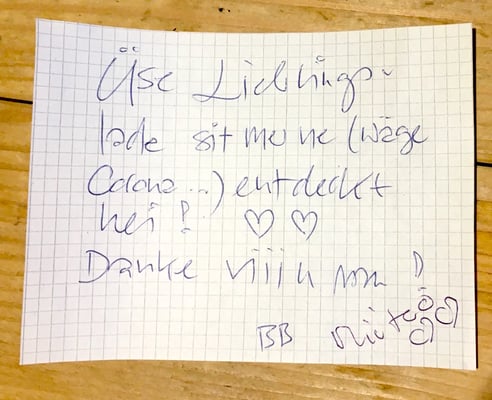 Üse Lieblings-
lade sit mer ne (wäge
Corona...) entdeckt
hei! ♡ ♡
Danke viiiu mau!
BB